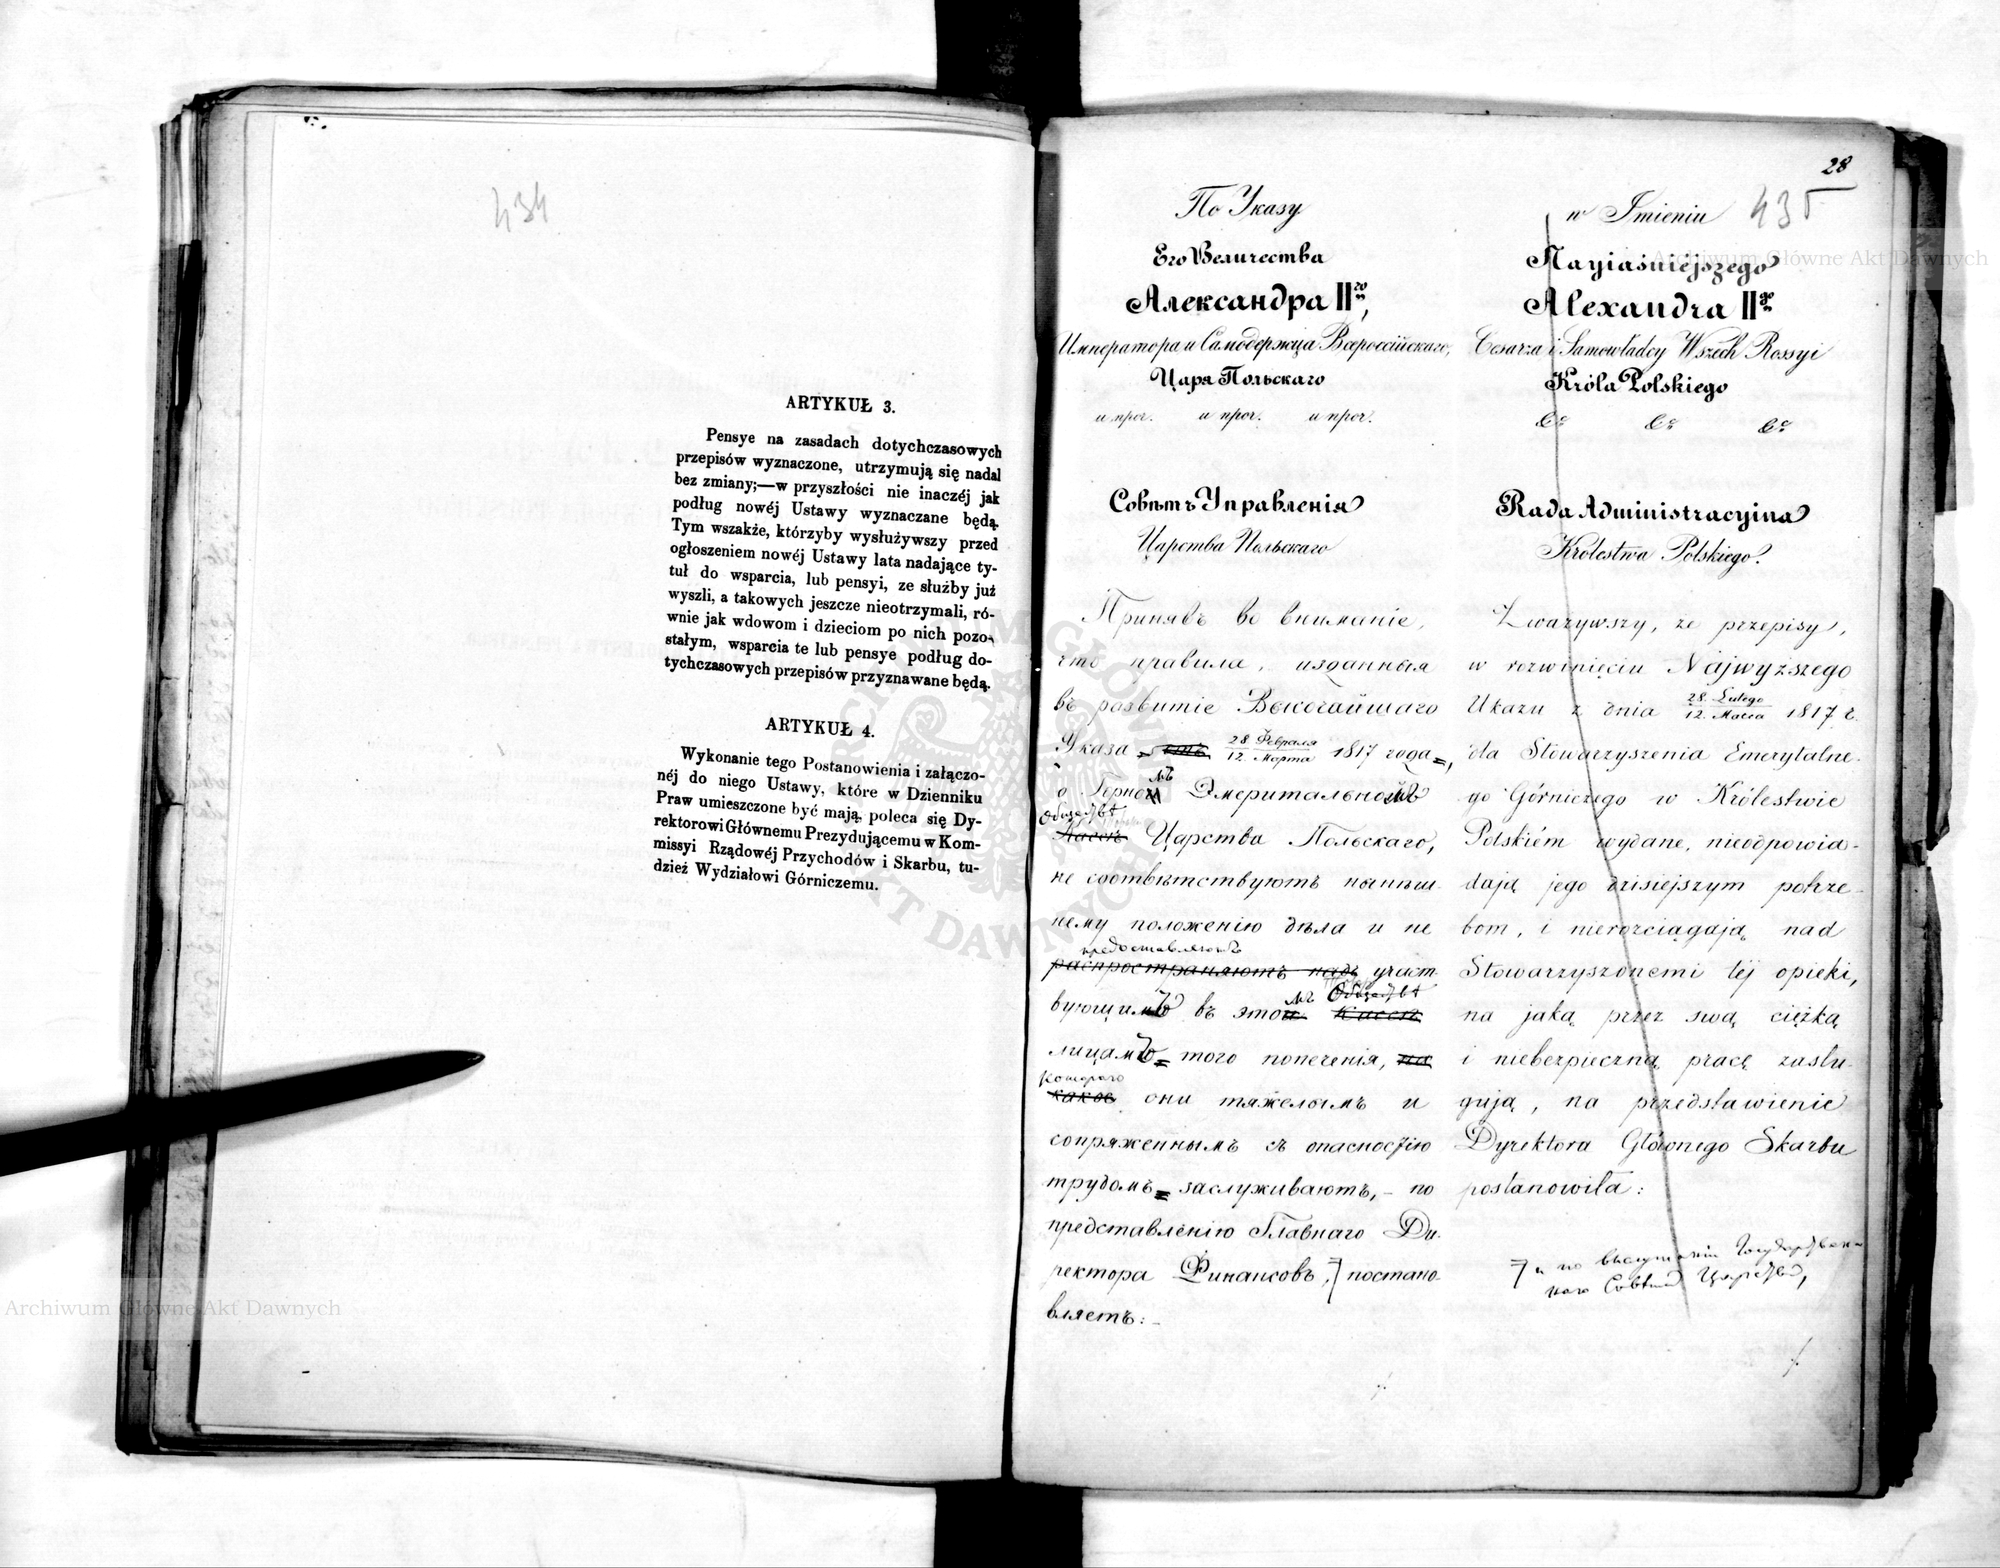 434
ARTYKUŁ 3.
Pensye na zasadach dotychczasowych
przepisów wyznaczone, utrzymują się nadal
bez zmiany;—w przyszłości nie inaczéj jak
podług nowéj Ustawy wyznaczane będą.
Tym wszakże, którzyby wysłużywszy przed
ogłoszeniem nowéj Ustawy lata nadające ty-
tuł do wsparcia, lub pensyi, ze służby już
wyszli, a takowych jeszcze nieotrzymali, ró-
wnie jak wdowom i dzieciom po nich pozo-
stałym, wsparcia te lub pensye podług do-
tychczasowych przepisów przyznawane będą.
ARTYKUŁ 4.
Wykonanie tego Postanowienia i załączo-
néj do niego Ustawy, które w Dzienniku
Praw umieszczone być mają, poleca się Dy-
rektorowi Głównemu Prezydującemu w Kom-
missyi Rządowéj Przychodów i Skarbu, tu-
dzież Wydziałowi Górniczemu.
28
435
По Указу
Его Величества
Александра IIго,
Императора и Самодержца Всероссійскаго,
Царя Польскаго
и проч. и проч. и проч.
Совѣтъ Управленія
Царства Польскаго
Принявъ во вниманіе,
что правила, изданныя
въ развитіе Высочайшаго
Указа отъ 28 Февраля / 12 Марта 1817 года,
о Горномъ Эмеритальномъ
Обществѣ
Кассѣ Царства Польскаго,
не соотвѣтствуютъ нынѣш-
нему положенію дѣла и не
предоставляютъ
распространяютъ надъ участ-
мъ Обществѣ
вующимъ въ этой Кассѣ
лицамъ того попеченія, на
котораго
какое они тяжелымъ и
сопряженнымъ съ опасностію
трудомъ заслуживаютъ,- по
представленію Главнаго Ди-
ректора Финансовъ, постано-
вляетъ:-
w Imieniu
Nayiaśniejszego
Alexandra IIgo
Cesarza i Samowładcy Wszech Rossyi
Króla Polskiego
&c &c &c
Rada Administracyina
Królestwa Polskiego.
Zważywszy, że przepisy,
w rozwinięciu Najwyższego
Ukazu z dnia 28 Lutego / 12 Marca 1817 r.
dla Stowarzyszenia Emerytalne-
go Górniczego w Królestwie
Polskiém wydane, nieodpowia-
dają jego dzisiejszym potrze-
bom, i nierozciągają nad
Stowarzyszonemi téj opieki,
na jaką przez swą ciężką
i niebezpieczną pracę zasłu-
gują, na przedstawienie
Dyrektora Głównego Skarbu
postanowiła:
и по выслушаніи Государствен-
наго Совѣта Царства,
Archiwum Główne Akt Dawnych
Archiwum Główne Akt Dawnych
ARCHIWUM GŁÓWNE AKT DAWNYCH